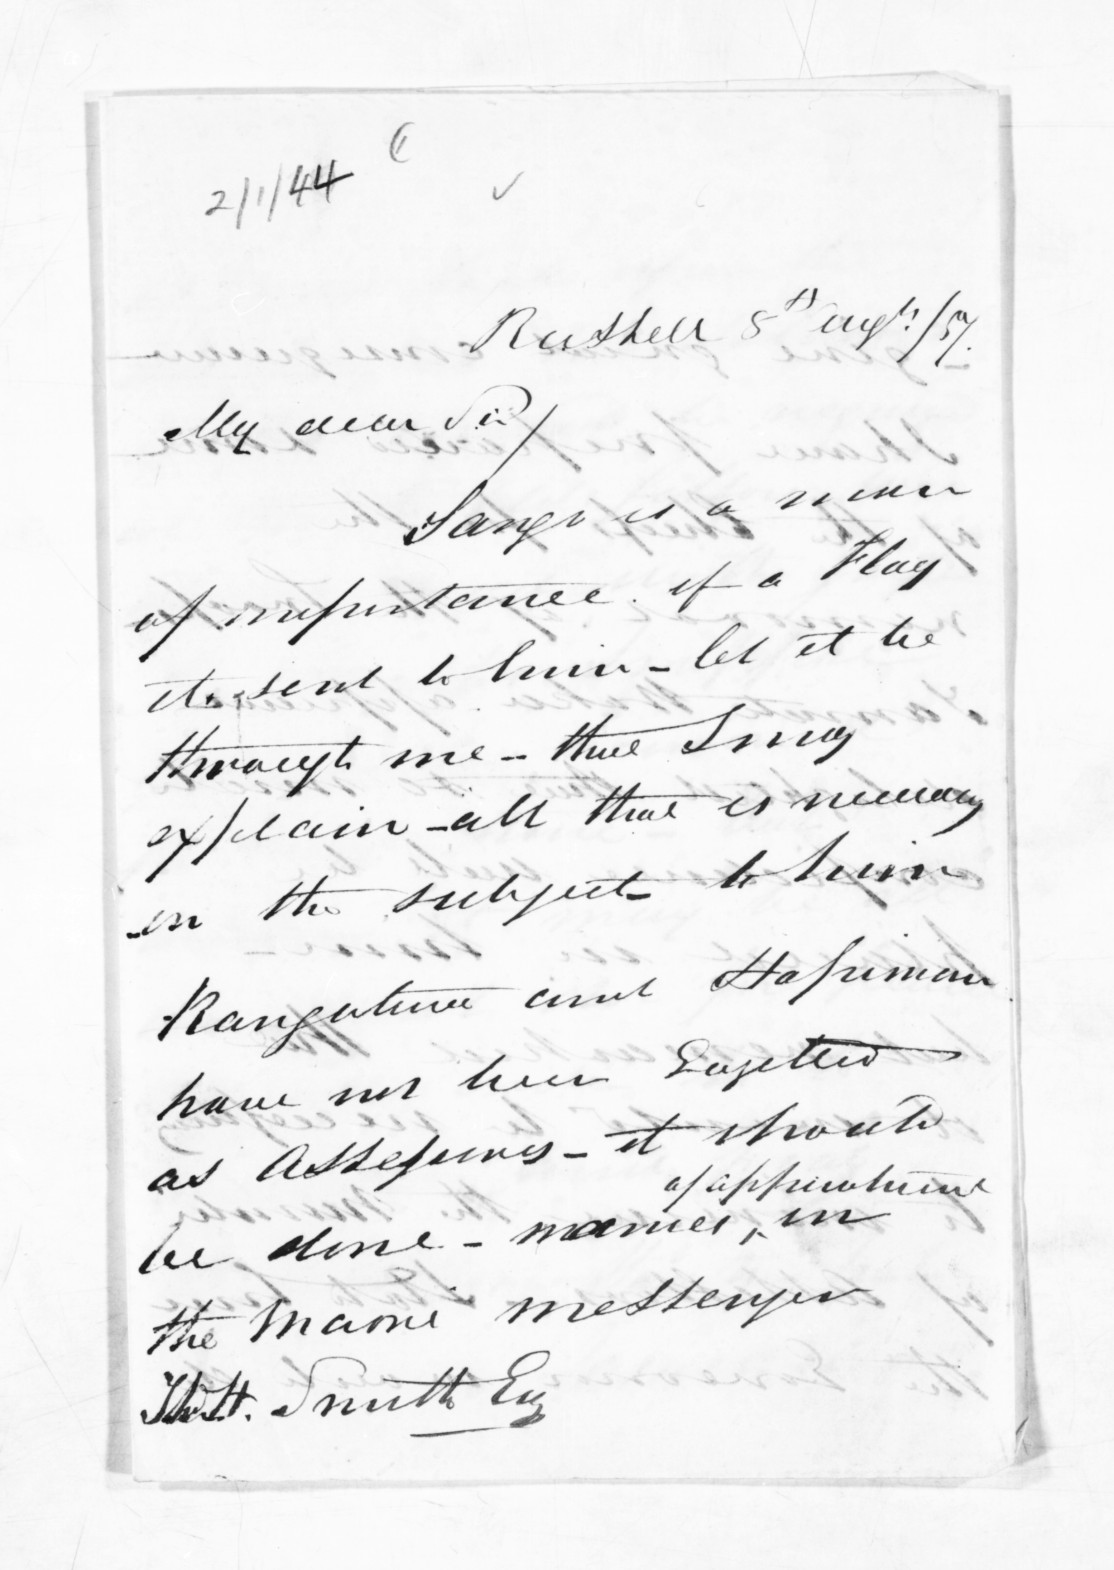 2/1/44
Russell 5th Augt. /57.
My dear Sir/
Tango is a man
of importance. if a Flag
is sent to him - let it be
through me - that I may
explain - all that is necessary
on the subject to him
Rangatira and Hapimana
have not been Gazetted
as Assessors - it should
of appointment
be done - names, in
the Maori Messenger
Thos H. Smith Esq